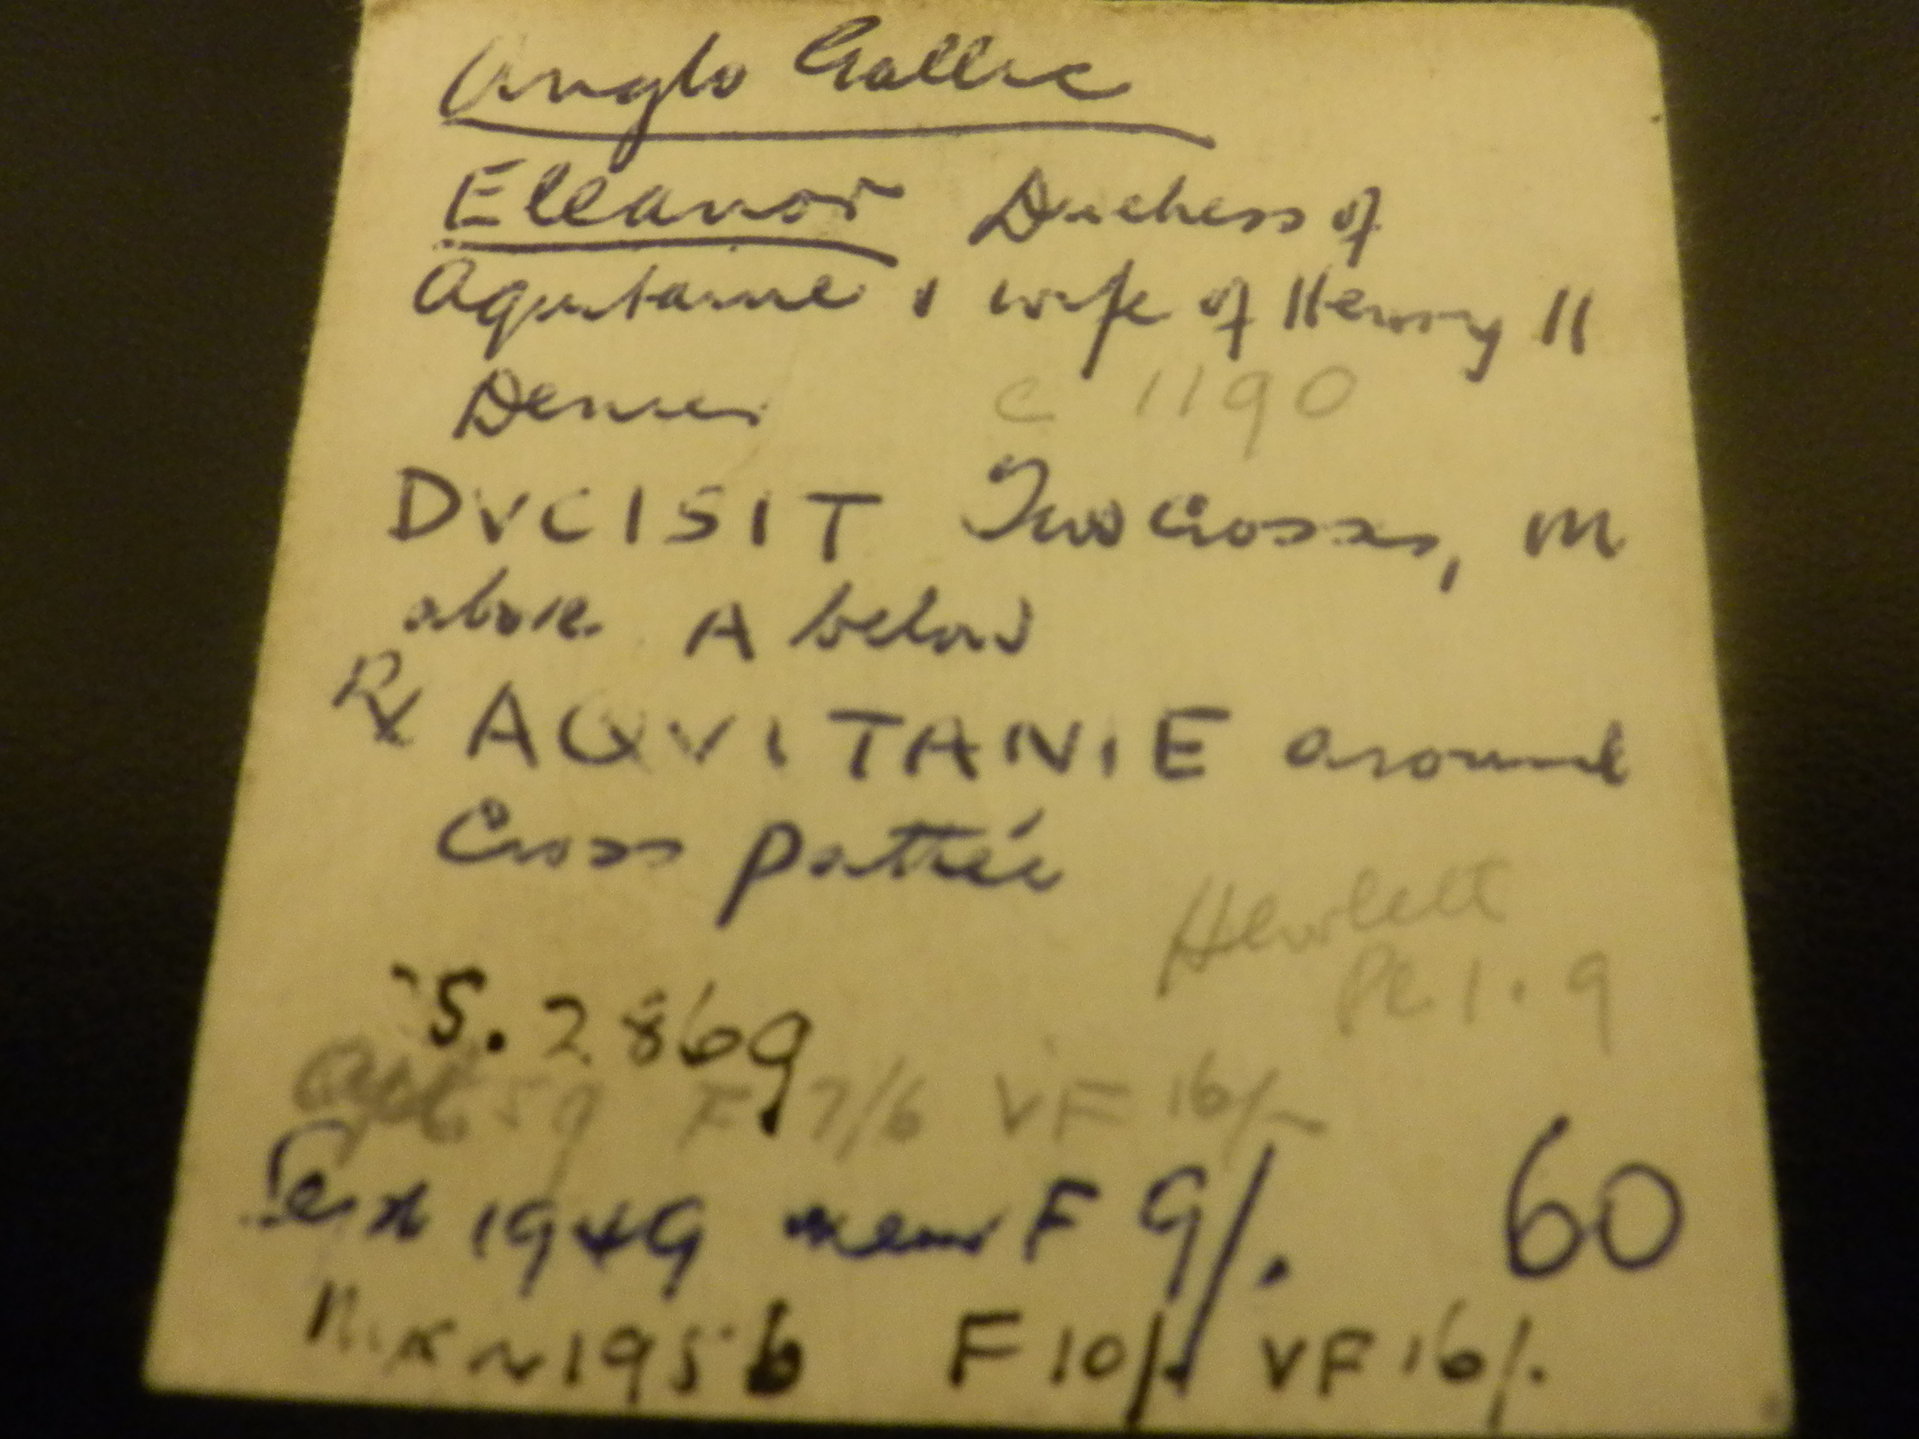 Anglo Gallic
Eleanor Duchess of
Aquitaine & wife of Henry II
Denier c 1190
DVCISIT Two Crosses, M
above A below
Rx AQVITANIE around
Cross pattée
Hewlett
Pl 1.9
S. 2869
59 F 7/6 VF 16/-
1949 F 9/. 60
1956 F 10/. VF 16/.